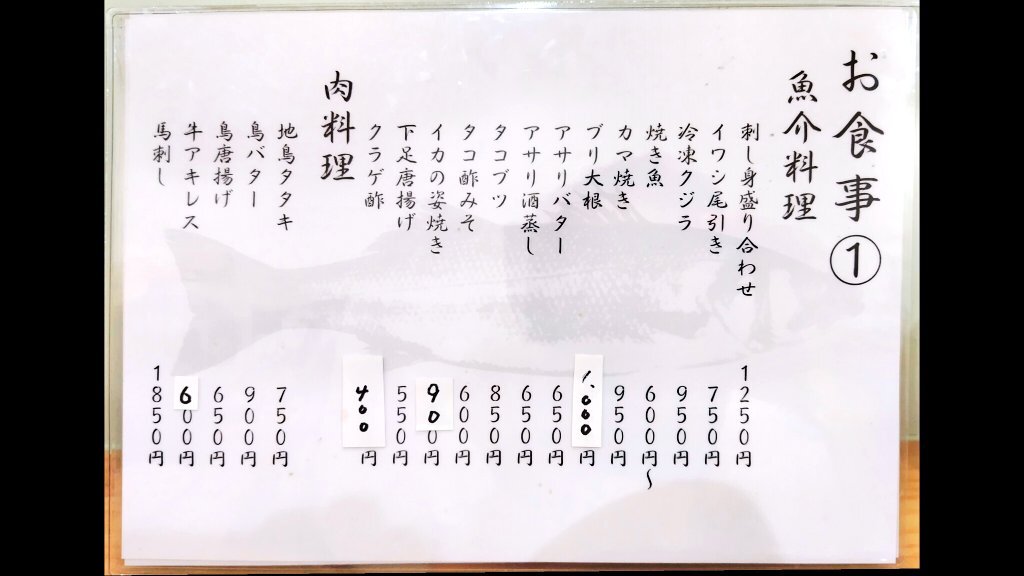 お食事①
魚介料理
刺し身盛り合わせ 1250円
イワシ尾引き 750円
冷凍クジラ 950円
焼き魚 600円~
カマ焼き 950円
ブリ大根 1,000円
アサリバター 650円
アサリ酒蒸し 650円
タコブツ 850円
タコ酢みそ 600円
イカの姿焼き 900円
下足唐揚げ 550円
クラゲ酢 400円
肉料理
地鳥タタキ 750円
鳥バター 900円
鳥唐揚げ 650円
牛アキレス 600円
馬刺し 1850円